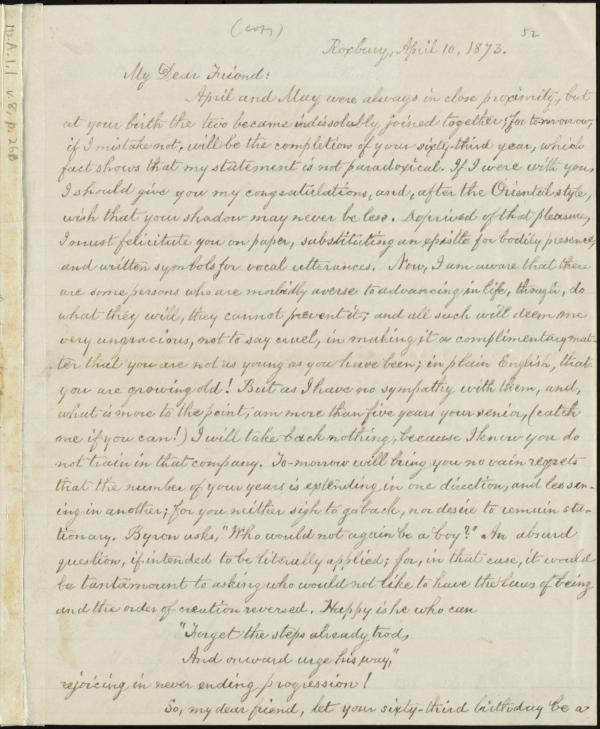 (copy)
52
Roxbury, April 10, 1873.
My Dear Friend:
April and May were always in close proximity, but
at your birth the two became indissolubly joined together; for tomorrow,
if I mistake not, will be the completion of your sixty-third year, which
fact shows that my statement is not paradoxical. If I were with you,
I should give you my congratulations, and, after the Oriental style,
wish that your shadow may never be less. Deprived of that pleasure,
I must felicitate you on paper, substituting an epistle for bodily presence,
and written symbols for vocal utterances. Now, I am aware that there
are some persons who are morbidly averse to advancing in life, though, do
what they will, they cannot prevent it; and all such will deem me
very ungracious, not to say cruel, in making it a complimentary mat-
ter that you are not as young as you have been; in plain English, that
you are growing old! But as I have no sympathy with them, and,
what is more to the point, am more than five years your senior, (catch
me if you can!) I will take back nothing, because I know you do
not train in that company. To-morrow will bring you no vain regrets
that the number of your years is extending in one direction, and lessen-
ing in another; for you neither sigh to go back, nor desire to remain sta-
tionary. Byron asks, "Who would not again be a boy?" An absurd
question, if intended to be literally applied; for, in that case, it would
be tantamount to asking who would not like to have the laws of being
and the order of creation reversed. Happy is he who can
"Forget the steps already trod,
And onward urge his way,"
rejoicing in never ending progression!
So, my dear friend, let your sixty-third birthday be a
Ms.A.1.1 v.8, p.26B